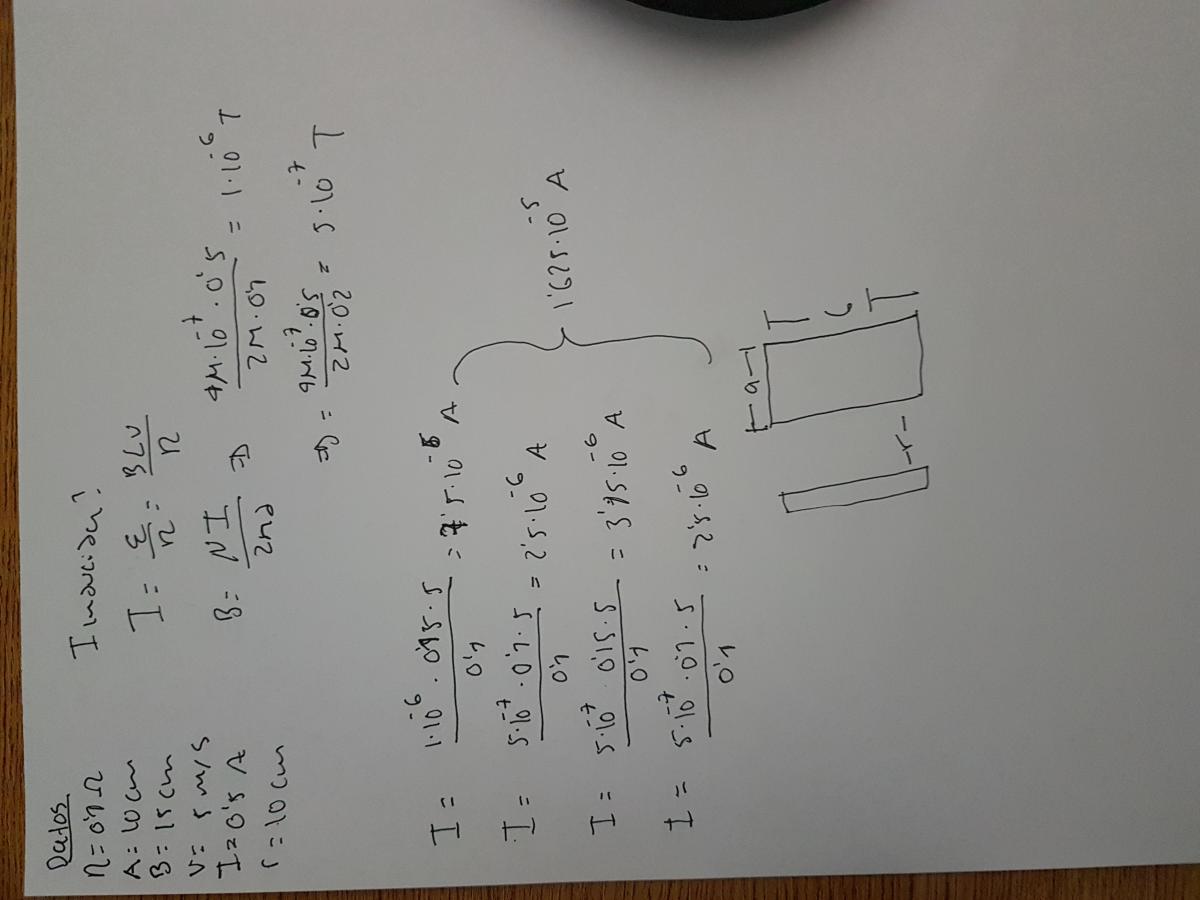 Datos
R = 0'1 Ω
A = 10 cm
B = 15 cm
v = 5 m/s
I = 0'5 A
r = 10 cm
I inducida?
I = ε/R = BLv/R
B = μI/2πd ⇒ 4π·10⁻⁷·0'5/2π·0'1 = 1·10⁻⁶ T
⇒ = 4π·10⁻⁷·0'5/2π·0'2 = 5·10⁻⁷ T
I = 1·10⁻⁶·0'15·5/0'1 = 7'5·10⁻⁶ A
I = 5·10⁻⁷·0'1·5/0'1 = 2'5·10⁻⁶ A
I = 5·10⁻⁷·0'15·5/0'1 = 3'75·10⁻⁶ A
I = 5·10⁻⁷·0'1·5/0'1 = 2'5·10⁻⁶ A
1'625·10⁻⁵ A
a
-r-